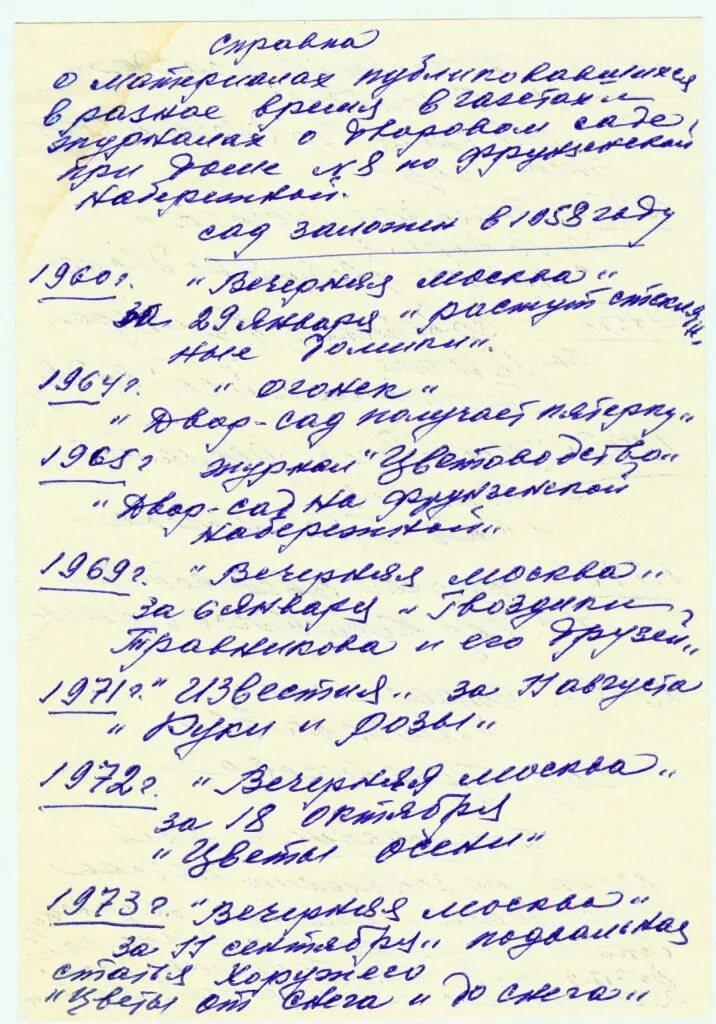 справка
о материалах публиковавшихся
в разное время в газетах и
журналах о дворовом саде
при доме №8 по Фрунзенской
набережной.
сад заложен в 1958 году
1960г. "Вечерняя Москва"
за 29 января "растут стеклян
ные домики".
1964г. "Огонек"
"Двор-сад получает пятерку"
1965г журнал "Цветоводство"
"Двор-сад на Фрунзенской
набережной"
1969г. "Вечерняя Москва"
за 6 января "Гвоздики
Травникова и его друзей"
1971г. "Известия" за 11 августа
"Руки и розы"
1972г. "Вечерняя Москва"
за 18 октября
"Цветы осени"
1973г. "Вечерняя Москва"
за 11 сентября подвальная
статья Хоружего
"Цветы от снега и до снега"